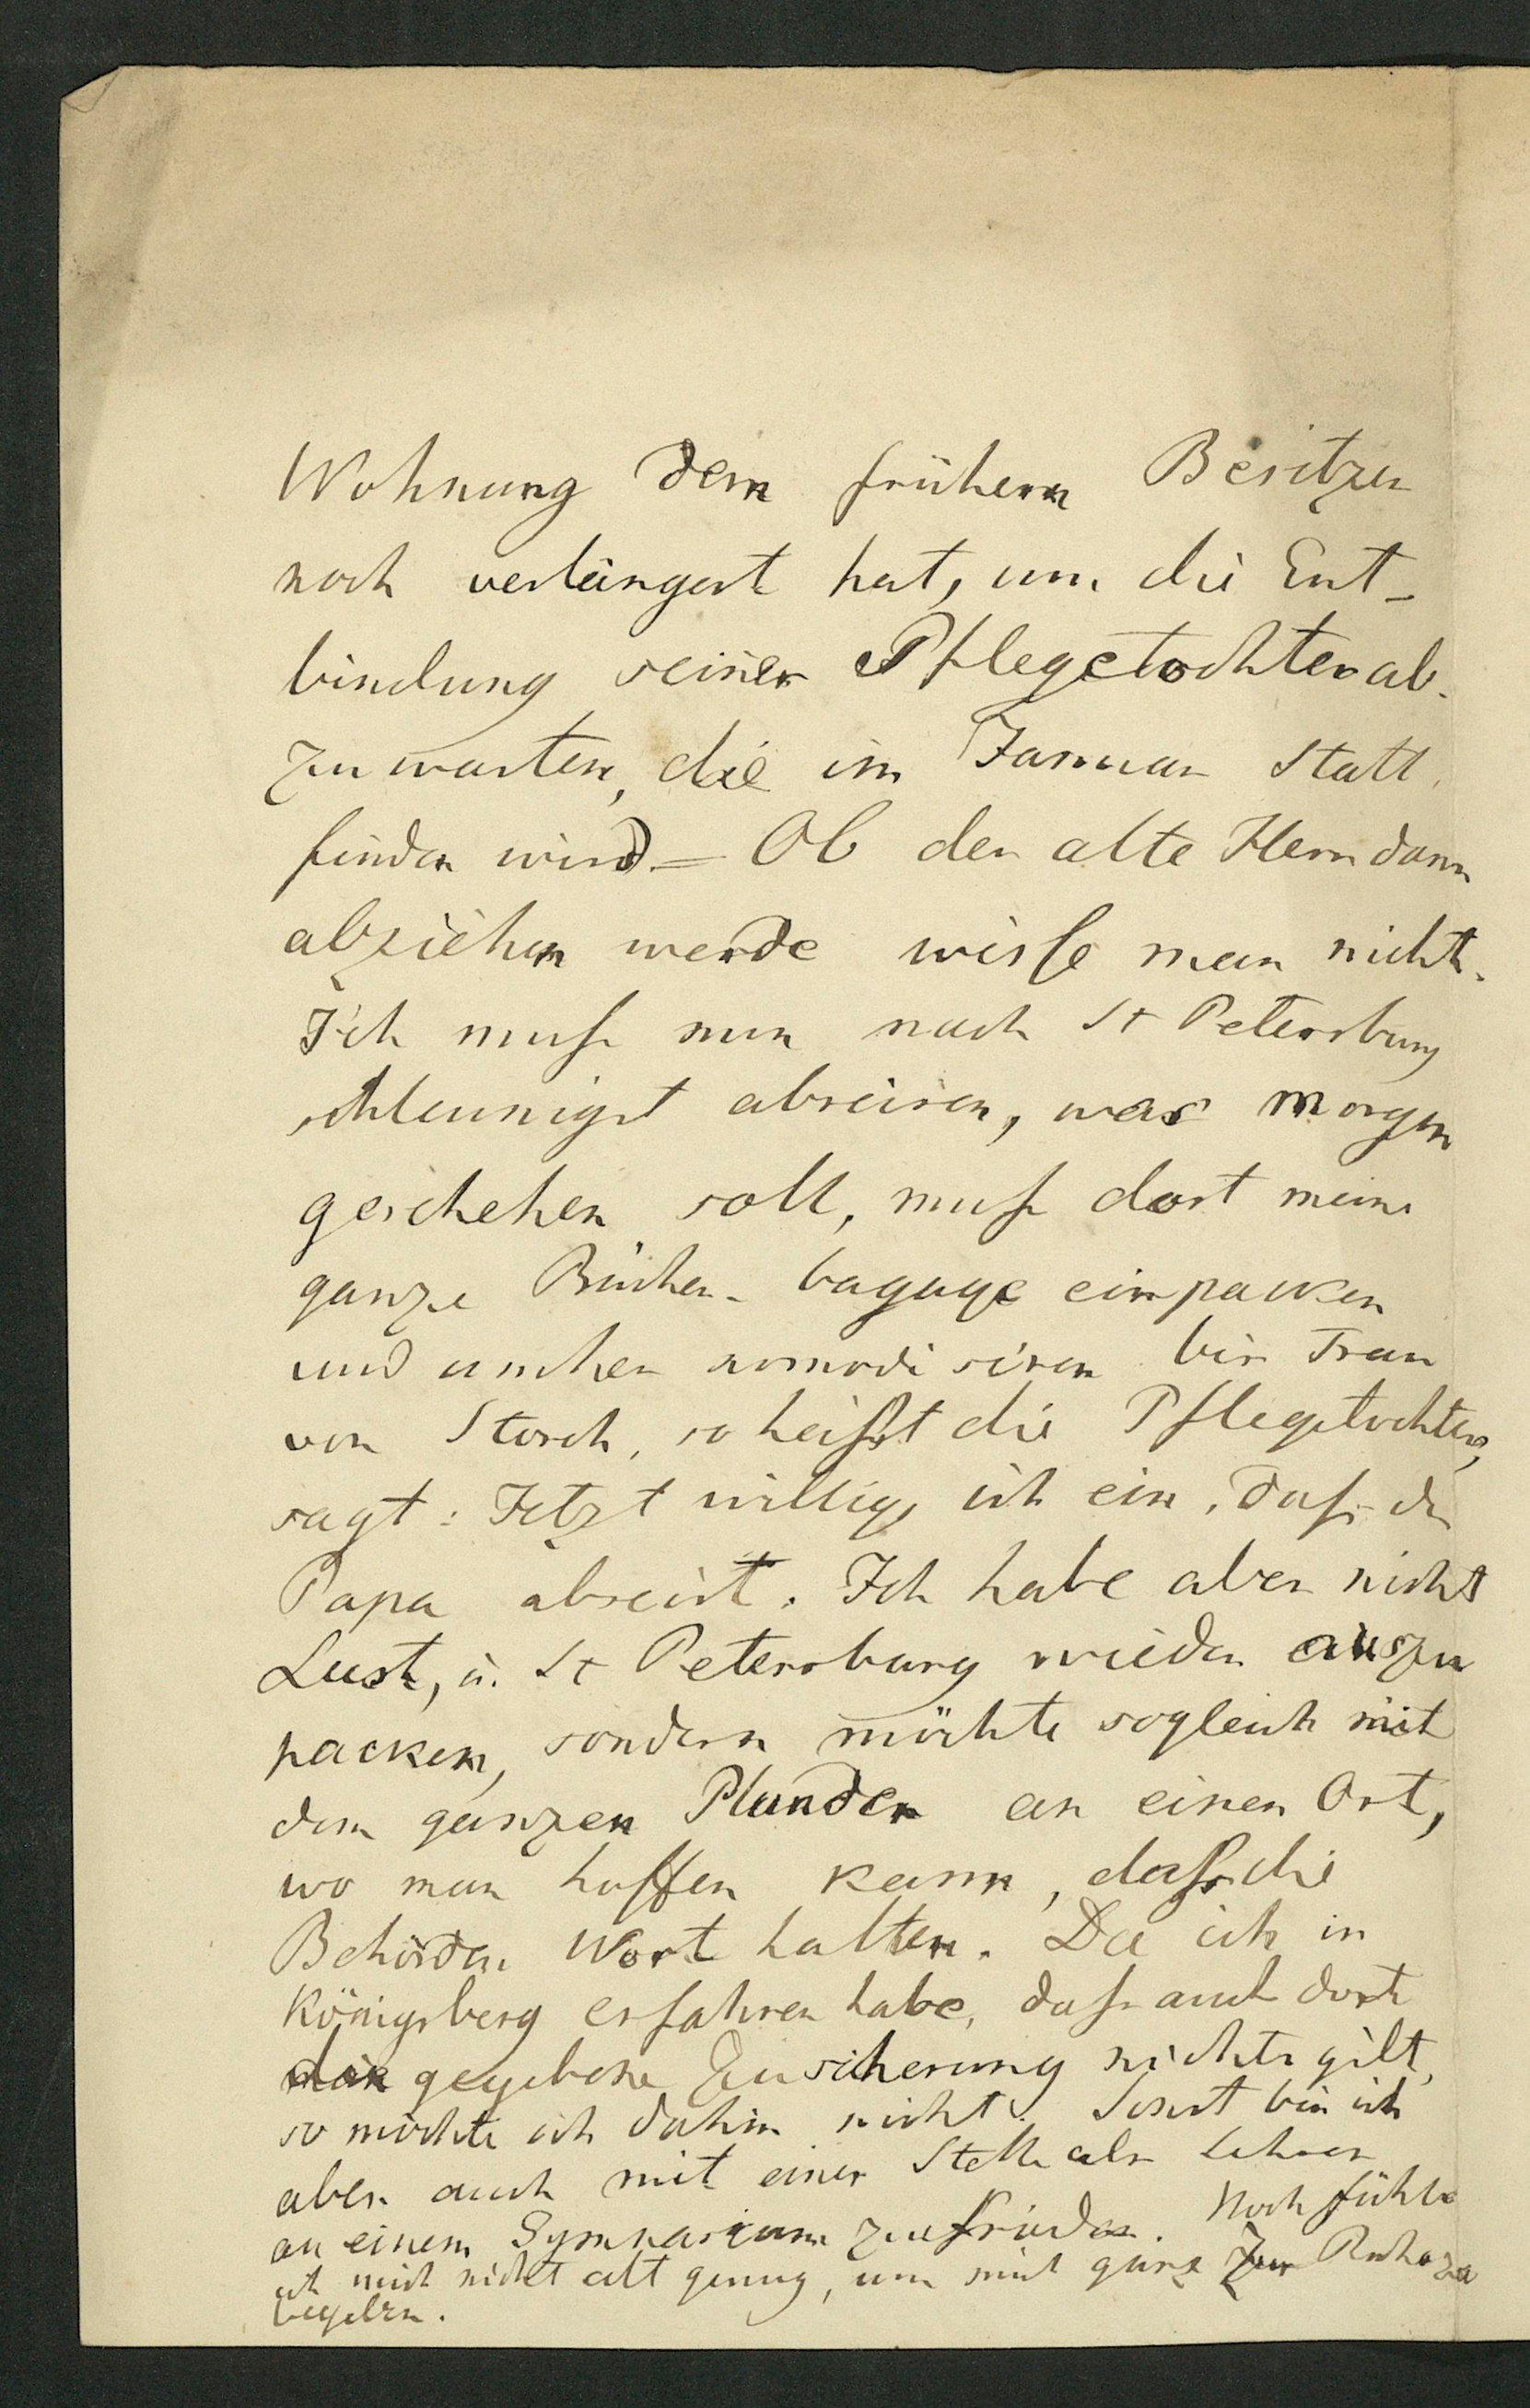 Wohnung dem frühern Besitzer
noch verlängert hat, um die Ent-
bindung seiner Pflegetochter ab-
zuwarten, die im Januar Statt
finden wird. – Ob der alte Herr dann
abziehen werde wisse man nicht.
Ich muß nun nach St Petersburg
schleunigst abreisen, was morgen
geschehen soll, muß dort meine
ganze Bücher-bagage einpacken
und umher nomadisiren bis Frau
von Storch, so heißt die Pflegetochter,
sagt: Jetzt willige ich ein, daß der
Papa abreist. Ich habe aber nicht
Lust, in St Petersburg wieder auszu
packen, sondern möchte sogleich mit
dem ganzen Plunder an einen Ort,
wo man hoffen kann, daß die
Behörden Wort halten. Da ich in
Königsberg erfahren habe, daß auch dort
die gegebene Zusicherung nichts gilt,
so möchte ich dahin nicht. Sonst bin ich
aber auch mit einer Stelle als Lehrer
an einem Gymnasium zufrieden. Noch fühle
ich mich nicht alt genug, um mich ganz zur Ruhe zu
begeben.